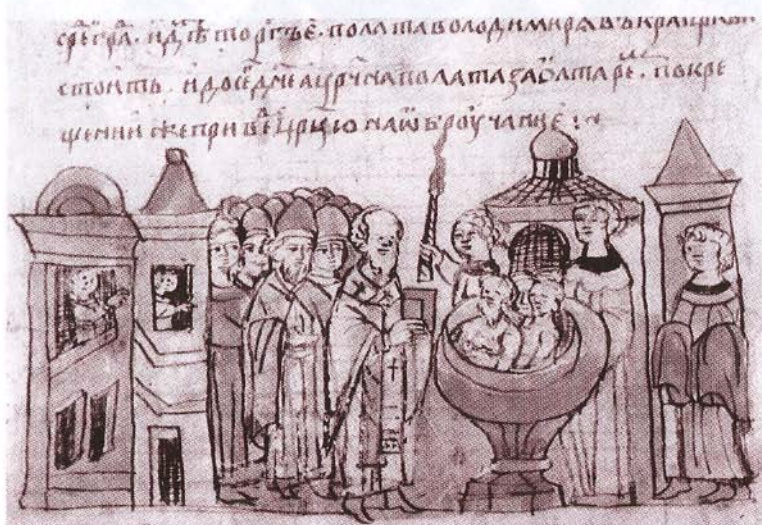 срѣ гра. идѣ торгъе. полата володимиря въ краи цркви
стоить. и до се дне а црчна полата за олтаре. по кре
щении же приве црцю на ѡброучание :~